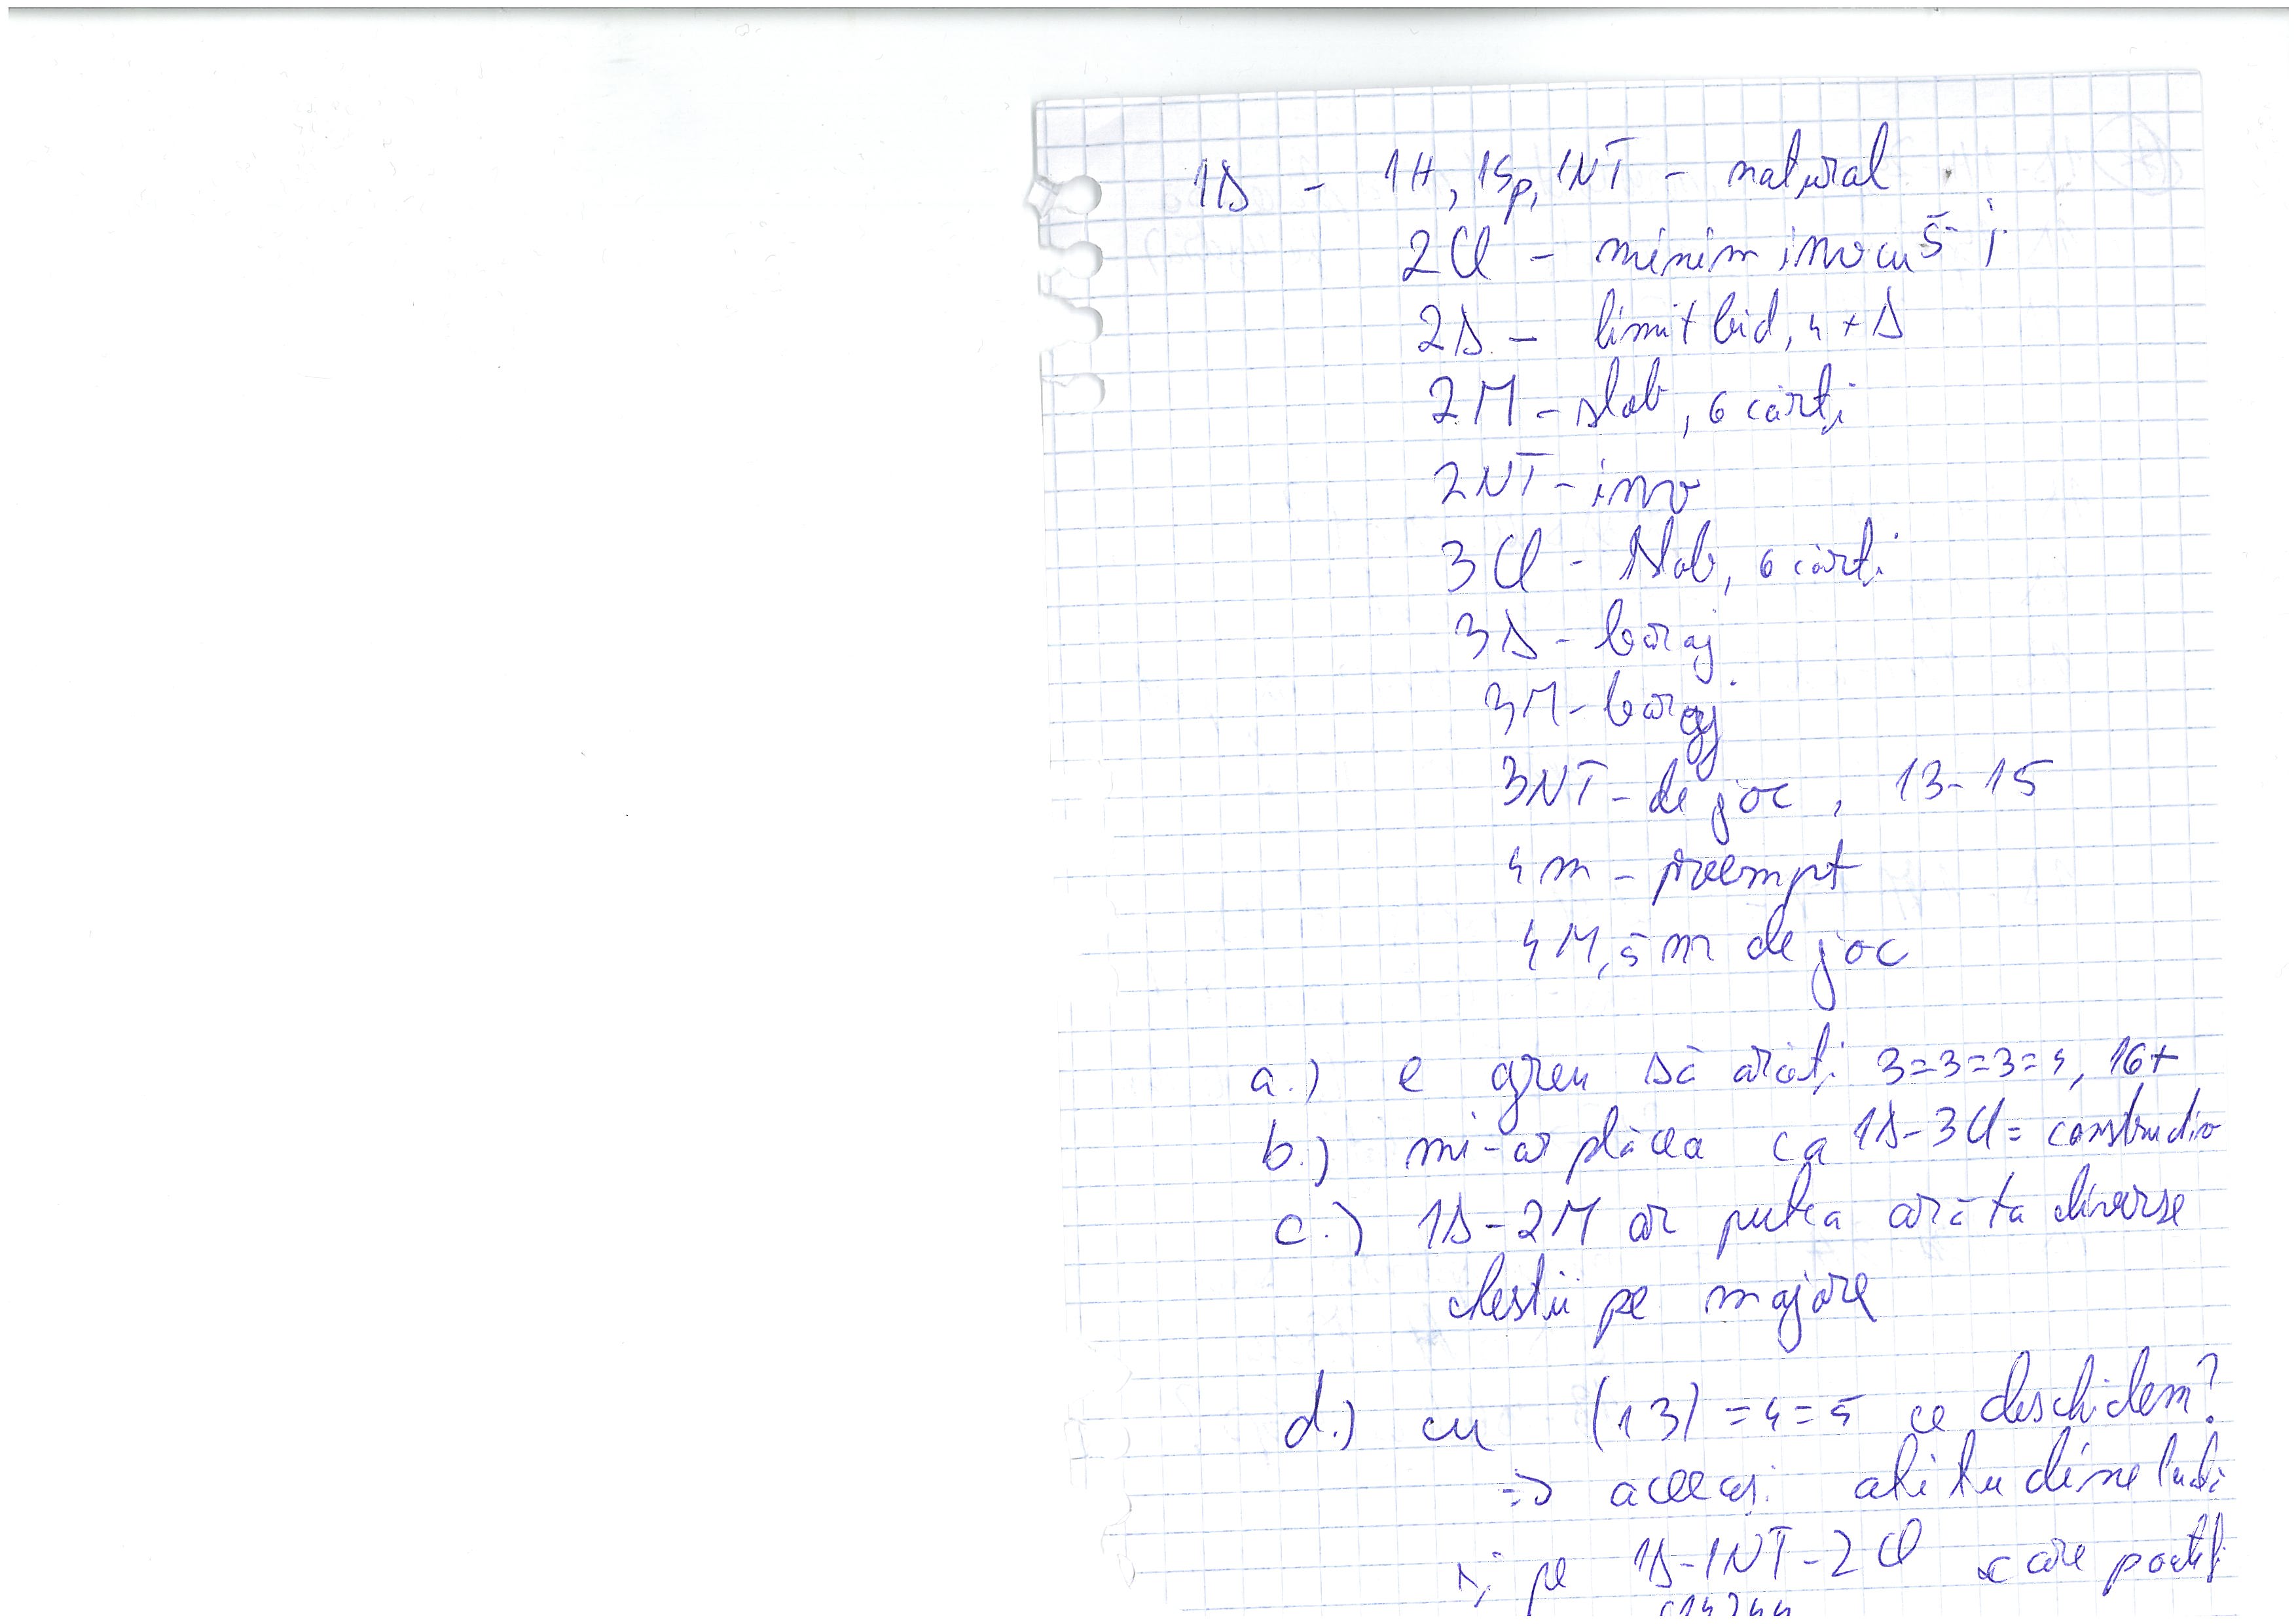 1D - 1H, 1Sp, 1NT - natural
2Cl - minim inv cu 5
2D - limit bid, 4+D
2M - slab, 6 cărți
2NT - inv
3Cl - slab, 6 cărți
3D - baraj
3M - baraj
3NT - de joc, 13-15
4m - preempt
4M, 5m de joc
a.) e greu să arăți 3=3=3=4, 16+
b.) mi-ar plăcea ca 1D-3Cl = constructiv
c.) 1D-2M ar putea arăta diverse
chestii pe majore
d.) cu (13)=4=5 ce deschidem?
=> aceeași atitudine
și pe 1D-1NT-2Cl care